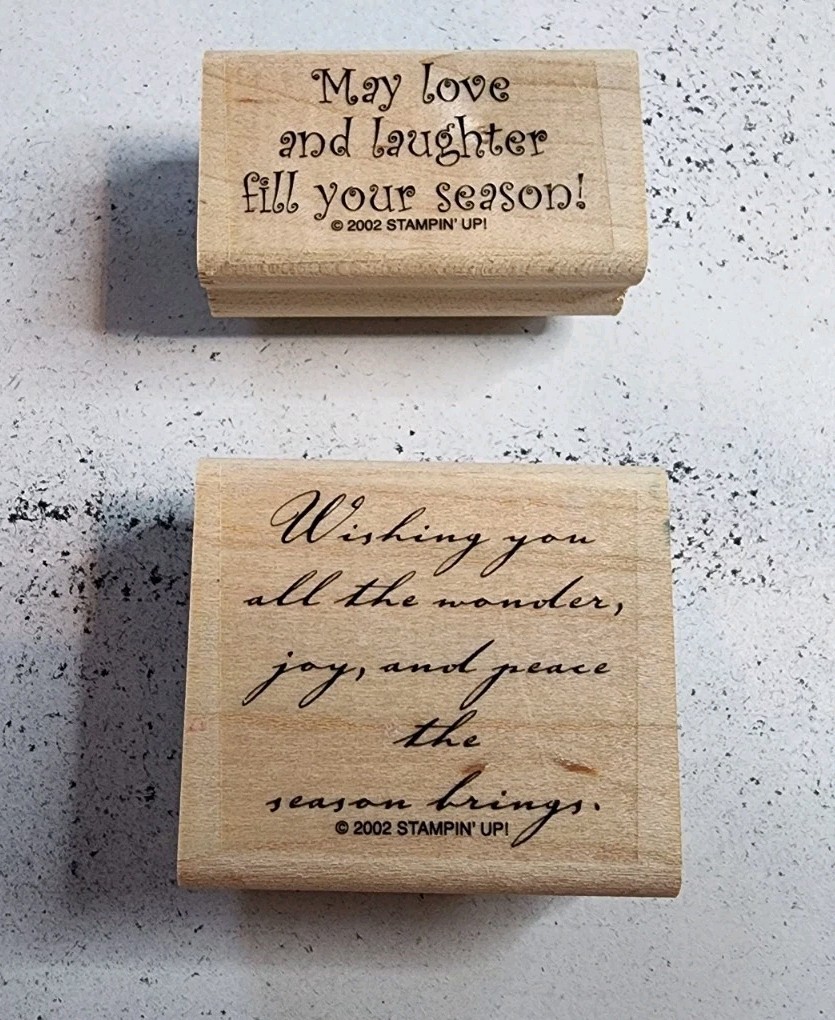 May love
and laughter
fill your season!
© 2002 STAMPIN' UP!
Wishing you
all the wonder,
joy, and peace
the
season brings.
© 2002 STAMPIN' UP!